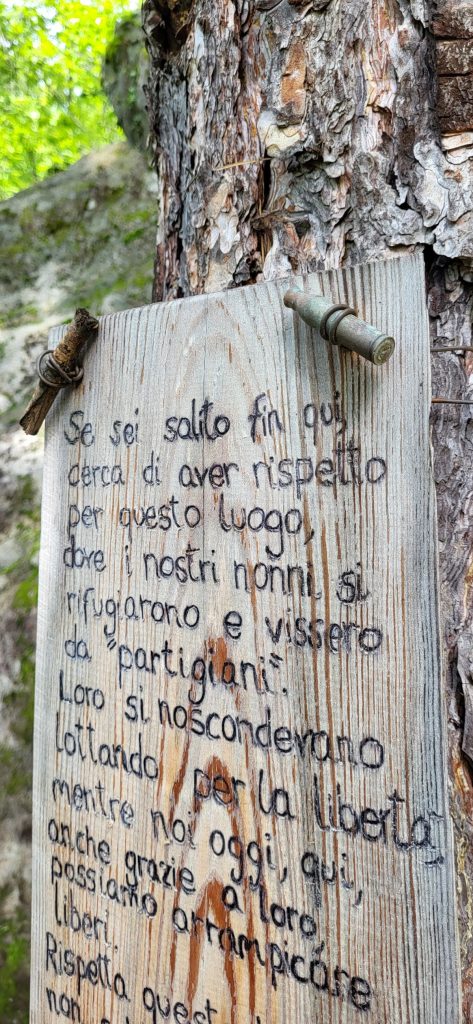 Se sei salito fin qui,
cerca di aver rispetto
per questo luogo,
dove i nostri nonni si
rifugiarono e vissero
da "partigiani".
Loro si noscondevano
lottando per la libertà,
mentre noi oggi, qui,
anche grazie a loro,
possiamo arrampicare
liberi.
Rispetta quest
non